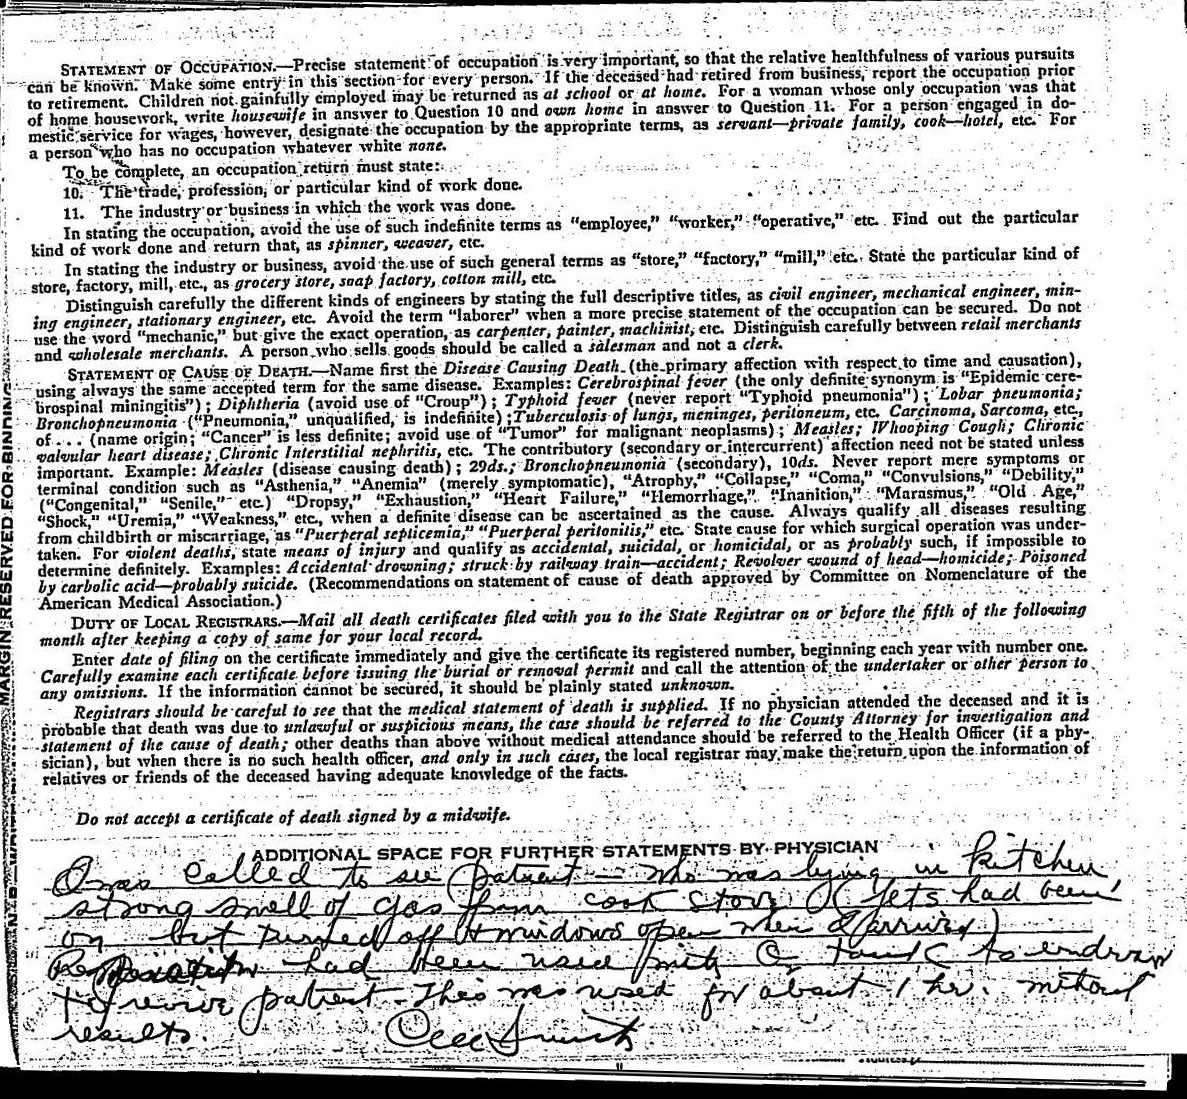 STATEMENT OF OCCUPATION.—Precise statement of occupation is very important, so that the relative healthfulness of various pursuits
can be known. Make some entry in this section for every person. If the deceased had retired from business, report the occupation prior
to retirement. Children not gainfully employed may be returned as at school or at home. For a woman whose only occupation was that
of home housework, write housewife in answer to Question 10 and own home in answer to Question 11. For a person engaged in do-
mestic service for wages, however, designate the occupation by the appropriate terms, as servant—private family, cook—hotel, etc. For
a person who has no occupation whatever white none.
To be complete, an occupation return must state:
10. The trade, profession, or particular kind of work done.
11. The industry or business in which the work was done.
In stating the occupation, avoid the use of such indefinite terms as "employee," "worker," "operative," etc. Find out the particular
kind of work done and return that, as spinner, weaver, etc.
In stating the industry or business, avoid the use of such general terms as "store," "factory," "mill," etc. State the particular kind of
store, factory, mill, etc., as grocery store, soap factory, cotton mill, etc.
Distinguish carefully the different kinds of engineers by stating the full descriptive titles, as civil engineer, mechanical engineer, min-
ing engineer, stationary engineer, etc. Avoid the term "laborer" when a more precise statement of the occupation can be secured. Do not
use the word "mechanic," but give the exact operation, as carpenter, painter, machinist, etc. Distinguish carefully between retail merchants
and wholesale merchants. A person who sells goods should be called a salesman and not a clerk.
STATEMENT OF CAUSE OF DEATH.—Name first the Disease Causing Death (the primary affection with respect to time and causation),
using always the same accepted term for the same disease. Examples: Cerebrospinal fever (the only definite synonym is "Epidemic cere-
brospinal miningitis"); Diphtheria (avoid use of "Croup"); Typhoid fever (never report "Typhoid pneumonia"); Lobar pneumonia;
Bronchopneumonia ("Pneumonia," unqualified, is indefinite); Tuberculosis of lungs, meninges, peritoneum, etc. Carcinoma, Sarcoma, etc.,
of . . . (name origin; "Cancer" is less definite; avoid use of "Tumor" for malignant neoplasms); Measles; Whooping Cough; Chronic
valvular heart disease; Chronic Interstitial nephritis, etc. The contributory (secondary or intercurrent) affection need not be stated unless
important. Example: Measles (disease causing death); 29ds.; Bronchopneumonia (secondary), 10ds. Never report mere symptoms or
terminal condition such as "Asthenia," "Anemia" (merely symptomatic), "Atrophy," "Collapse," "Coma," "Convulsions," "Debility,"
("Congenital," "Senile," etc.) "Dropsy," "Exhaustion," "Heart Failure," "Hemorrhage," "Inanition," "Marasmus," "Old Age,"
"Shock," "Uremia," "Weakness," etc., when a definite disease can be ascertained as the cause. Always qualify all diseases resulting
from childbirth or miscarriage, as "Puerperal septicemia," "Puerperal peritonitis," etc. State cause for which surgical operation was under-
taken. For violent deaths, state means of injury and qualify as accidental, suicidal, or homicidal, or as probably such, if impossible to
determine definitely. Examples: Accidental drowning; struck by railway train—accident; Revolver wound of head—homicide; Poisoned
by carbolic acid—probably suicide. (Recommendations on statement of cause of death approved by Committee on Nomenclature of the
American Medical Association.)
DUTY OF LOCAL REGISTRARS.—Mail all death certificates filed with you to the State Registrar on or before the fifth of the following
month after keeping a copy of same for your local record.
Enter date of filing on the certificate immediately and give the certificate its registered number, beginning each year with number one.
Carefully examine each certificate before issuing the burial or removal permit and call the attention of the undertaker or other person to
any omissions. If the information cannot be secured, it should be plainly stated unknown.
Registrars should be careful to see that the medical statement of death is supplied. If no physician attended the deceased and it is
probable that death was due to unlawful or suspicious means, the case should be referred to the County Attorney for investigation and
statement of the cause of death; other deaths than above without medical attendance should be referred to the Health Officer (if a phy-
sician), but when there is no such health officer, and only in such cases, the local registrar may make the return upon the information of
relatives or friends of the deceased having adequate knowledge of the facts.
Do not accept a certificate of death signed by a midwife.
ADDITIONAL SPACE FOR FURTHER STATEMENTS BY PHYSICIAN
I was called to see patient — who was lying in kitchen
strong smell of gas from cook stove (Jets had been
on but turned off & windows open when I arrived)
had been used with O tank to endeavor
to revive patient. This was used for about 1 hr. without
results.
Smith
MARGIN RESERVED FOR BINDING